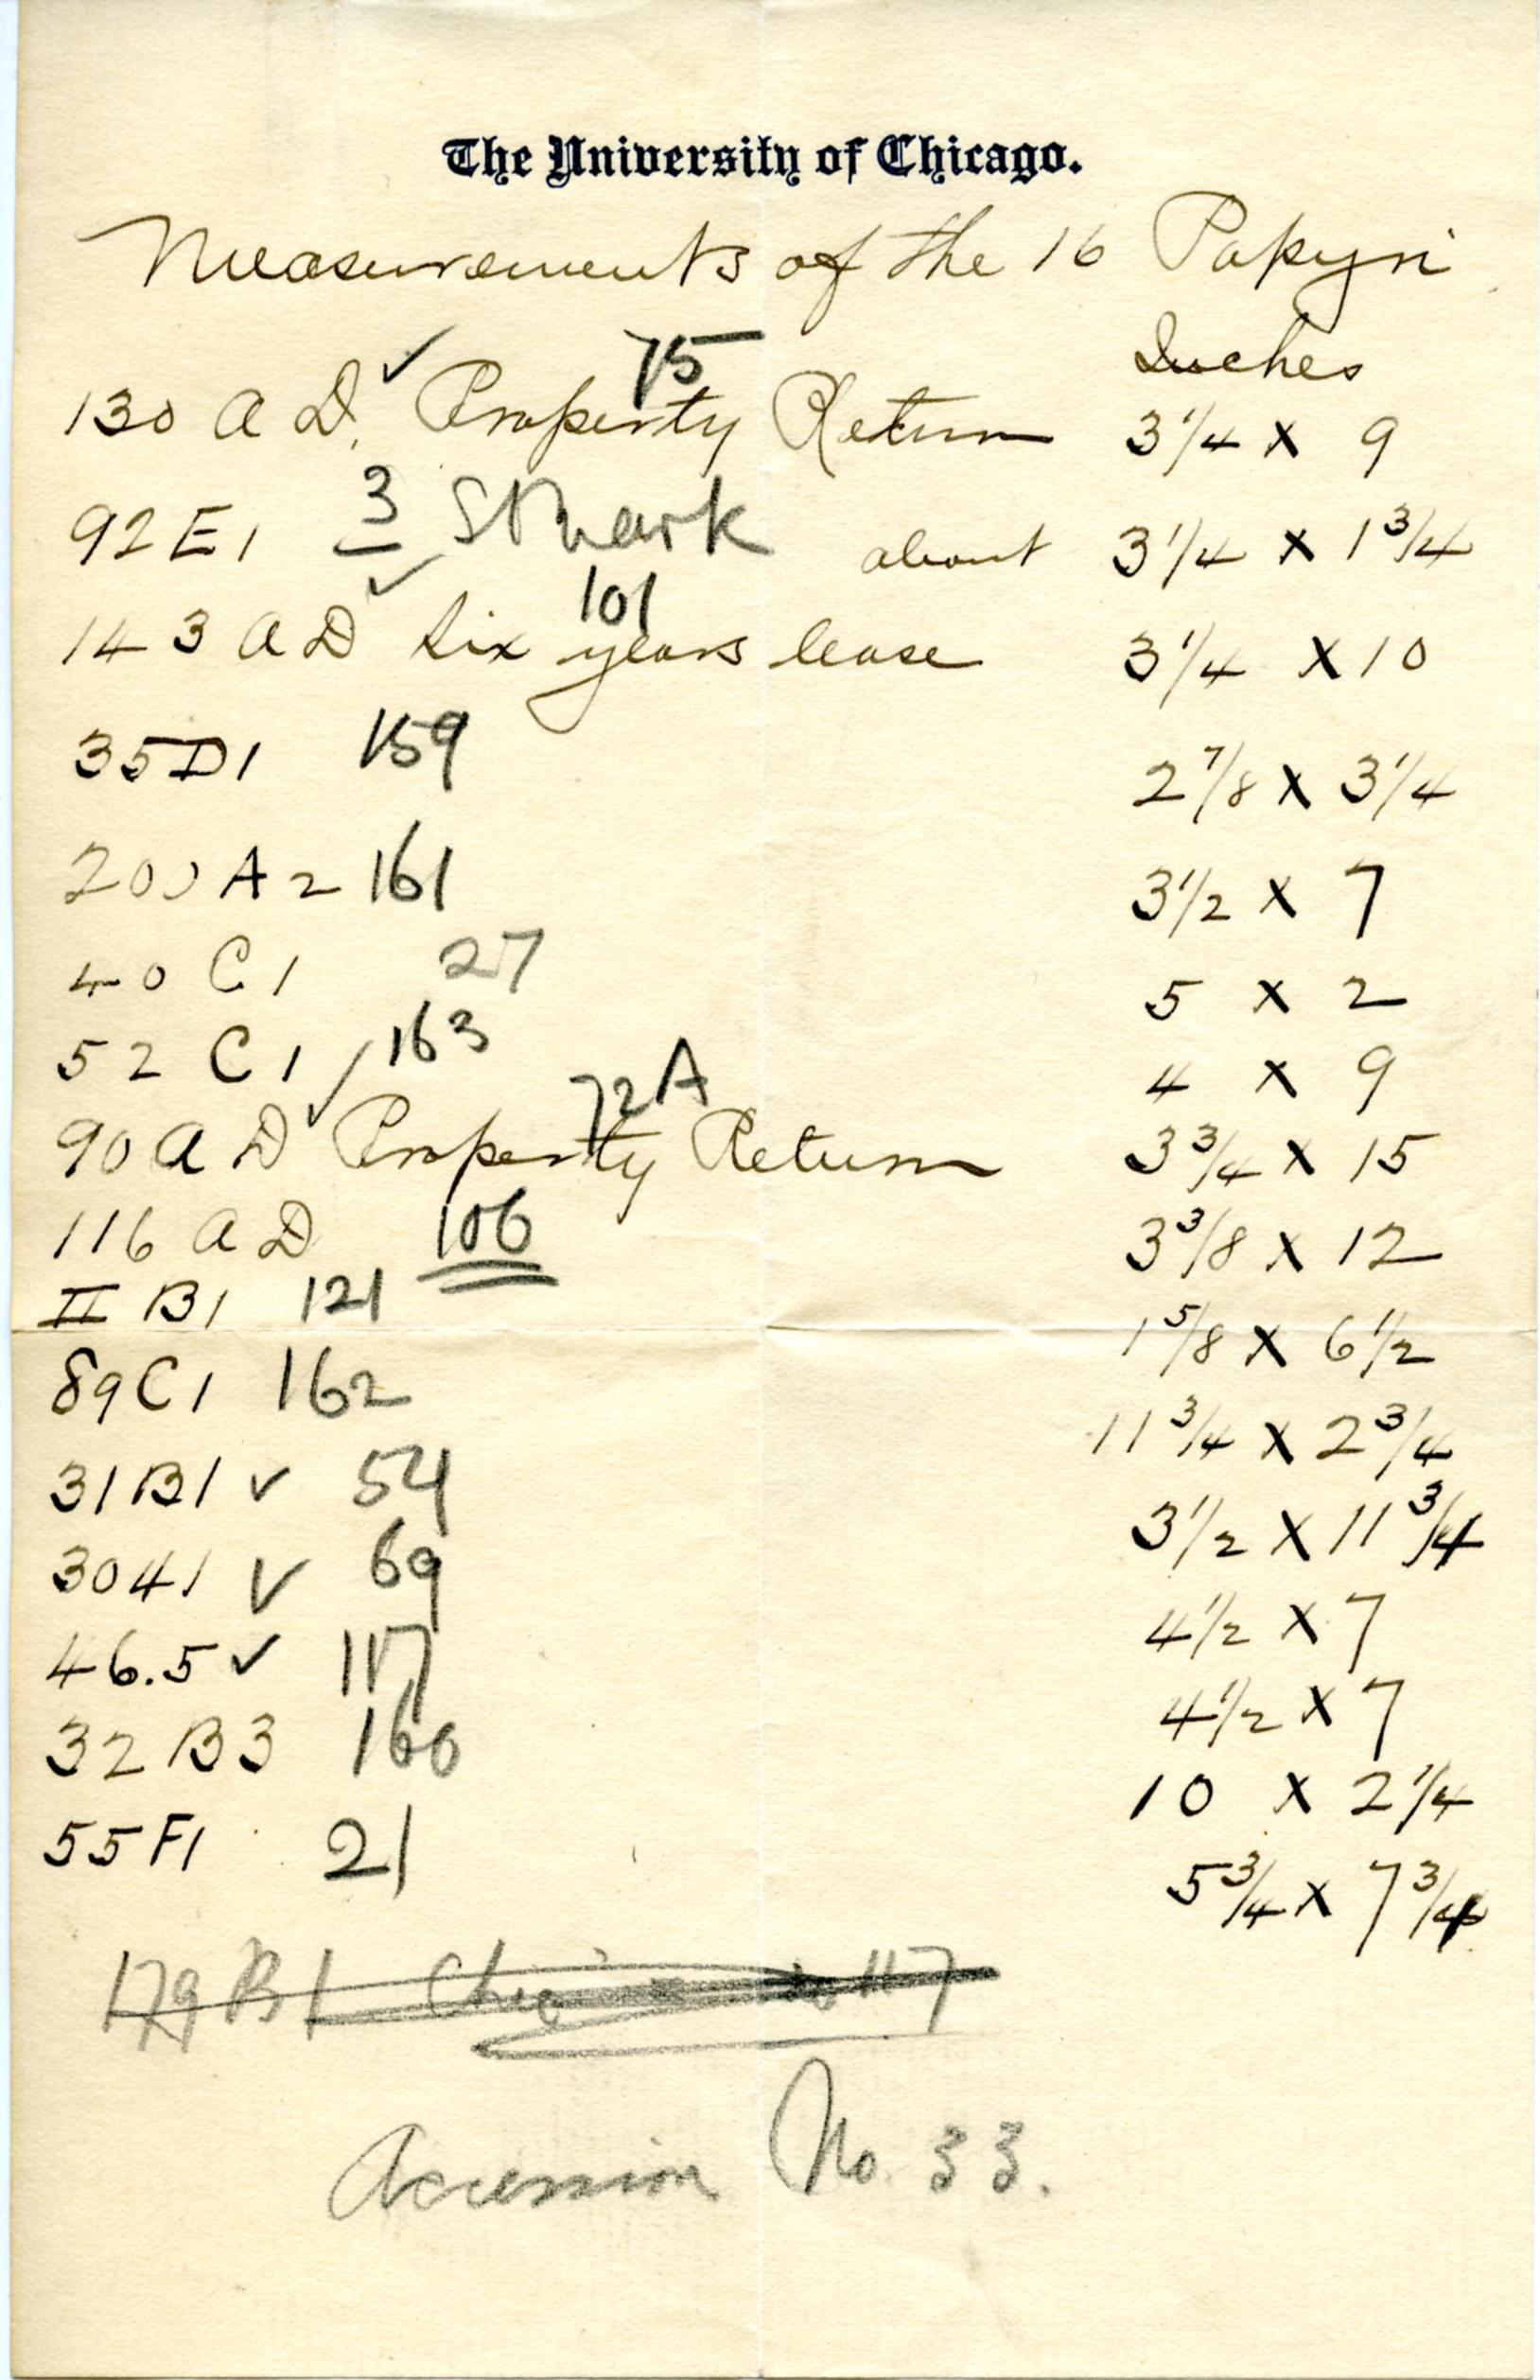 The University of Chicago.
Measurements of the 16 Papyri
Inches
75
130 A D. ✓ Property Return 3 1/4 X 9
92 E1 3 St Mark about 3 1/4 X 1 3/4
101
143 A D ✓ Six years lease 3 1/4 X 10
35D1 159 2 7/8 X 3 1/4
200 A2 161 3 1/2 X 7
40 C1 27 5 X 2
52 C1 163 4 X 9
72A
90 A D ✓ Property Return 3 3/4 X 15
116 A D 106 3 3/8 X 12
II B1 121 1 5/8 X 6 1/2
89C1 162 11 3/4 X 2 3/4
31B1 ✓ 54 3 1/2 X 11 3/4
3041 ✓ 69 4 1/2 X 7
46.5 ✓ 117 4 1/2 X 7
32 B3 160 10 X 2 1/4
55F1 21 5 3/4 X 7 3/4
179 B1 117
Accession No. 33.